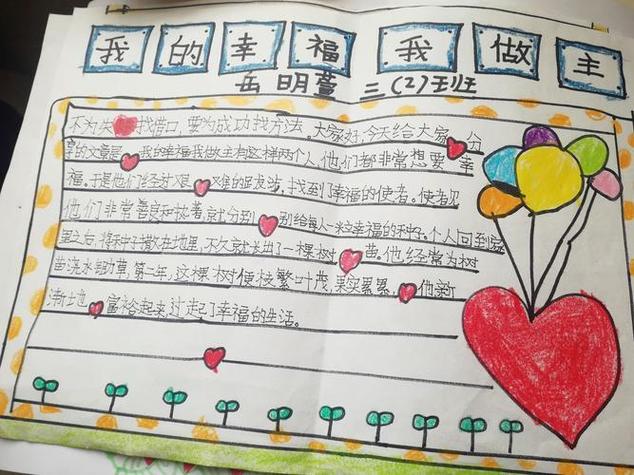 我的幸福我做主
岳明萱 三(2)班
不为失找借口，要为成功找方法。大家好，今天给大家分
享的文章是我的幸福我做主有这样两个人他们都非常想要幸
福，于是他们经过艰难的跋涉，找到了幸福的使者。使者见
他们非常善良和执着，就分到别给每人一粒幸福的种子。个人回到家
里之后，将种子撒在地里，不久就长出了一棵树苗。他经常为树
苗浇水锄草，第二年，这棵树便枝繁叶茂，果实累累，他渐
渐地富裕起来，过起了幸福的生活。